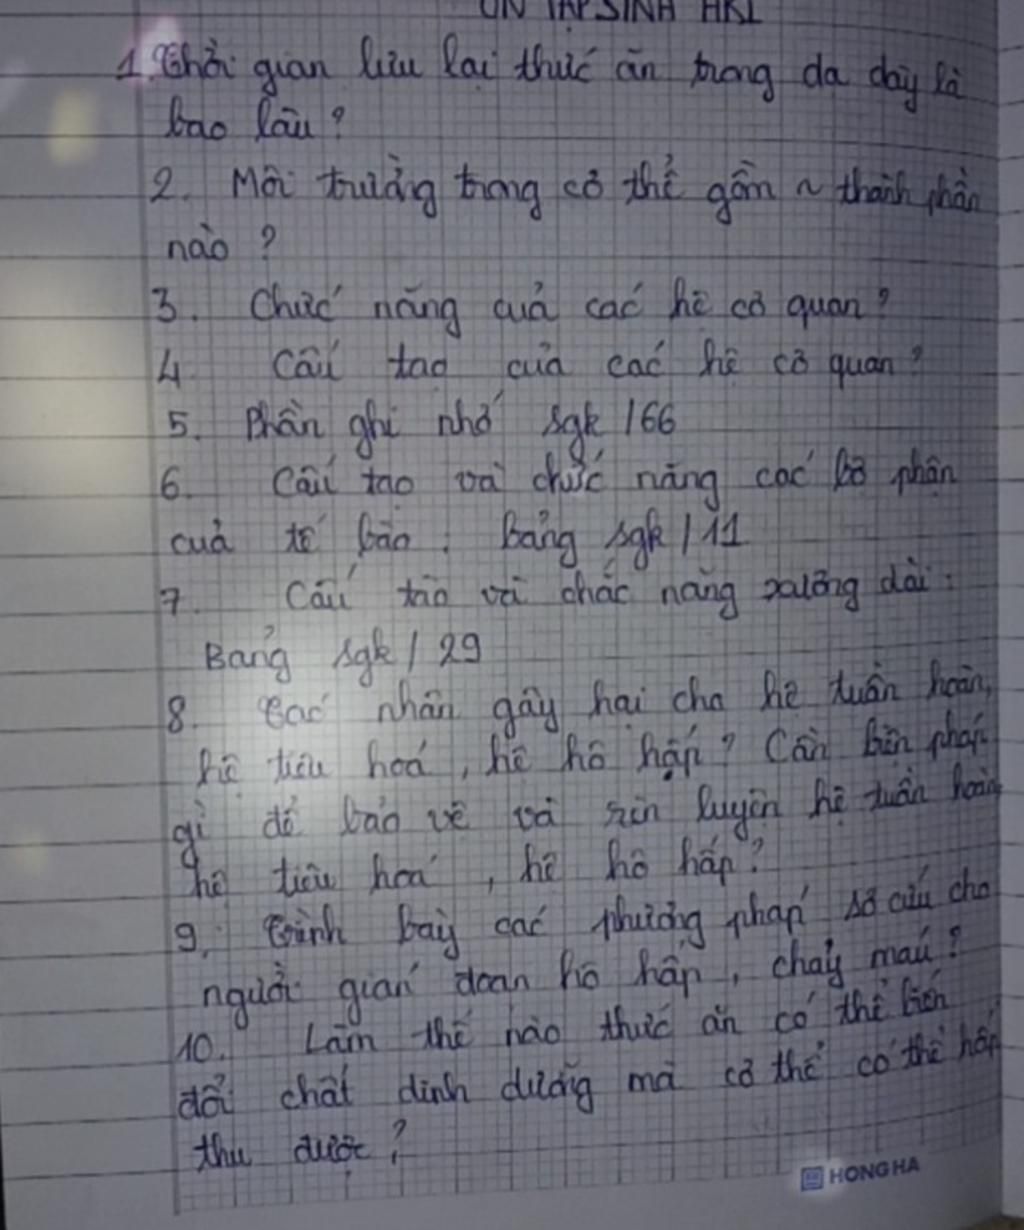 ÔN TẬP SINH HKI
1. Thời gian lưu lại thức ăn trong dạ dày là
bao lâu?
2. Môi trường trong cơ thể gồm ~ thành phần
nào?
3. Chức năng của các hệ cơ quan?
4. Cấu tạo của các hệ cơ quan?
5. Phần ghi nhớ sgk / 66
6. Cấu tạo và chức năng các bộ phận
của tế bào. Bảng sgk / 11
7. Cấu tạo và chức năng xương dài:
Bảng sgk / 29
8. Tác nhân gây hại cho hệ tuần hoàn,
hệ tiêu hoá, hệ hô hấp? Cần biện pháp
gì để bảo vệ và rèn luyện hệ tuần hoàn
hệ tiêu hoá, hệ hô hấp?
9. Trình bày các phương pháp sơ cứu cho
người gián đoạn hô hấp, chảy máu?
10. Làm thế nào thức ăn có thể biến
đổi chất dinh dưỡng mà cơ thể có thể hấp
thu được?
HONG HA